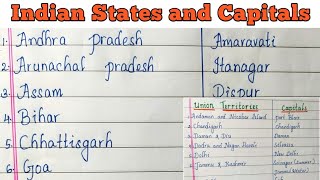 Indian States and Capitals
1. Andhra pradesh Amaravati
2. Arunachal pradesh Itanagar
3. Assam Dispur
4. Bihar
5. Chhattisgarh
6. Goa
Union Territories Capitals
1. Andaman and Nicobar Island Port Blair
2. Chandigarh Chandigarh
3. Daman & Diu Daman
4. Dadra and Nagar Haveli Silvassa
5. Delhi New Delhi
6. Jammu & Kashmir Srinagar (Summer)
Jammu (Winter)